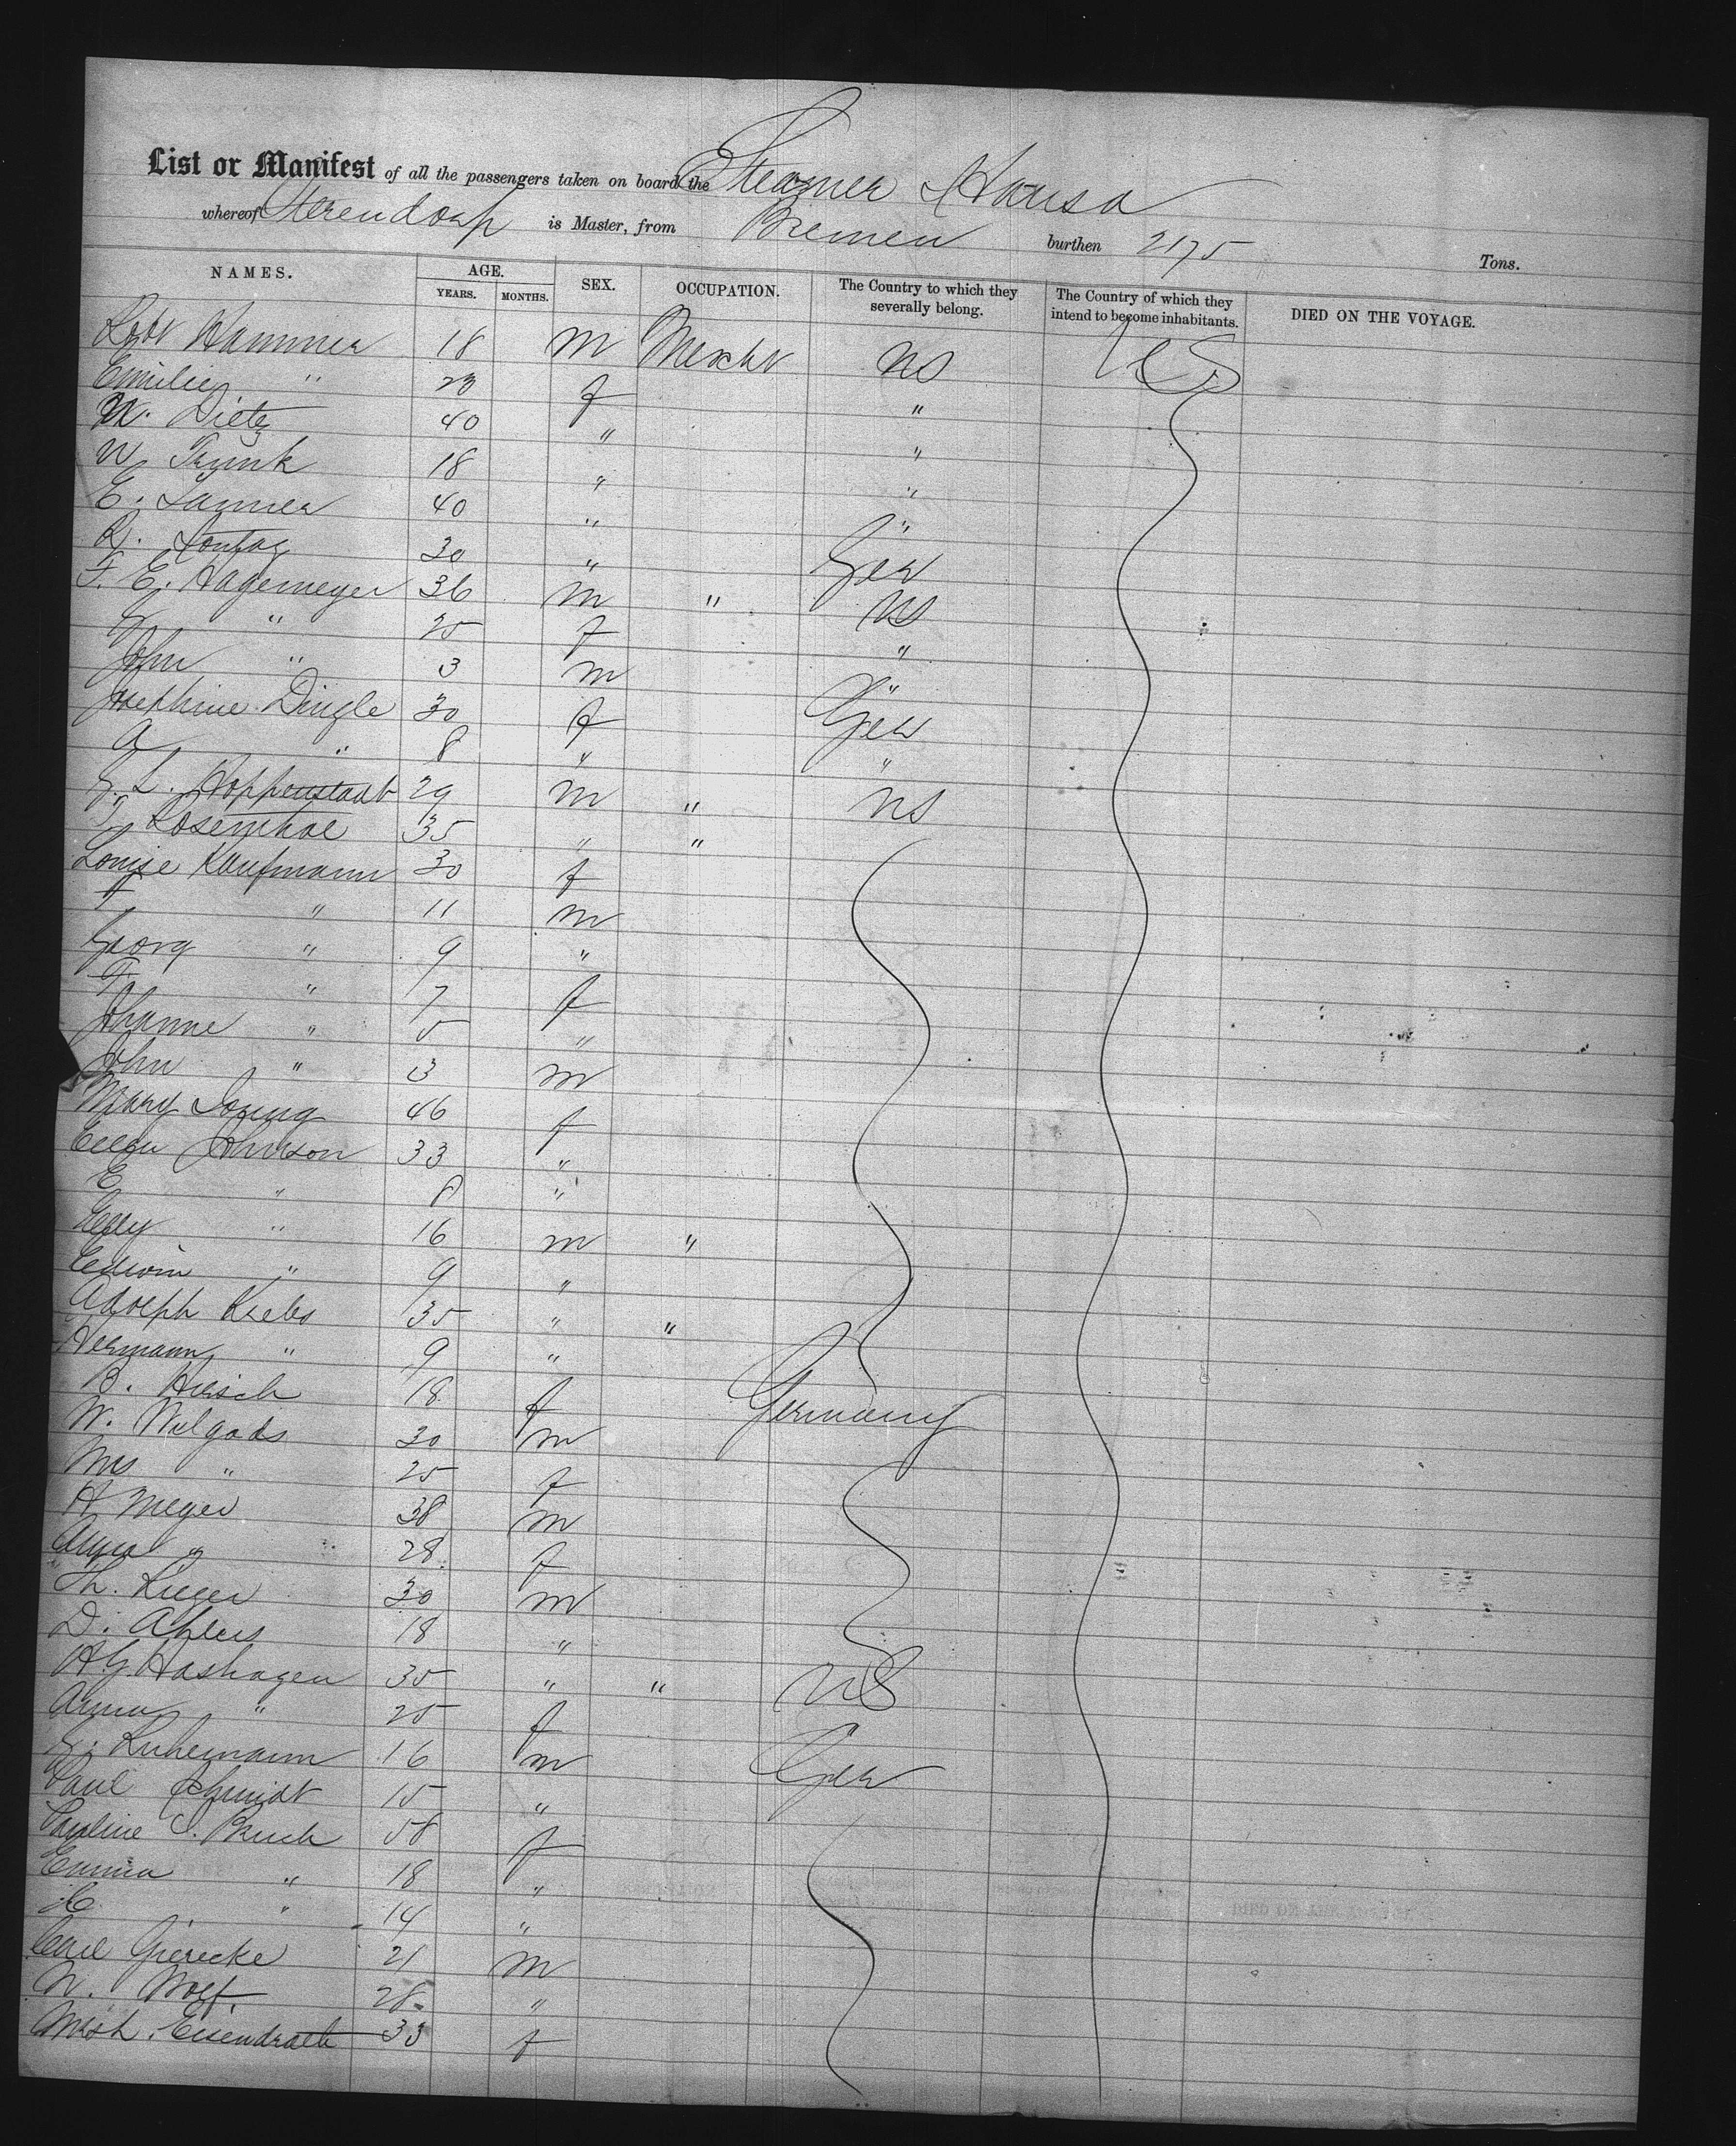 List or Manifest of all the passengers taken on board the Steamer Hansa
whereof is Master, from Bremen burthen 2175 Tons.
NAMES. AGE. SEX. OCCUPATION. The Country to which they severally belong. The Country of which they intend to become inhabitants. DIED ON THE VOYAGE.
YEARS. MONTHS.
Robt Hammer 18 m Mercht US US
Emilie " 23 f "
Dietz 40 " "
Trunk 18 " "
E. 40 " "
30 " Ger
F. E. Hagemeyer 36 m " US
" 25 f "
John " 3 m "
Josephine Dingle 30 f Ger
A " 8 " "
L. Hoppenstadt 29 m " US
Rosenthal 35 " "
Louise Kaufmann 30 f
" 11 m
Georg " 9 "
F " 7 f
Johanne " 5 "
John " 3 m
Mary Young 46 f
Ellen Johnson 33 "
E " 8 "
" 16 m "
Edwin " 9 "
Adolph Krebs 35 " "
Hermann " 9 "
B. Hirsch 18 f Germany
W. 30 m
Mrs " 25 f
H Meyer 38 m
Anna " 28 f
Th. 30 m
D. Ahlers 18 "
H G. Hashagen 35 " " US
Anna " 25 f
Kuhemann 16 m Ger
Paul Schmidt 15 "
Pauline Bruck 58 f
Emma " 18 "
" 14 "
Carl Giesecke 21 m
W. Wolf 28 "
Eisendrath 33 f